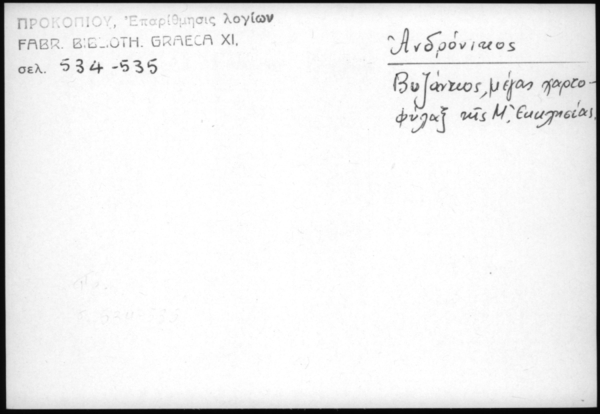 ΠΡΟΚΟΠΙΟΥ, Ἐπαρίθμησις λογίων
FABR. BIBLIOTH. GRAECA XI.
σελ. 534-535
Ἀνδρόνικος
Βυζάντιος, μέγας χαρτο-
φύλαξ τῆς Μ. Ἐκκλησίας.